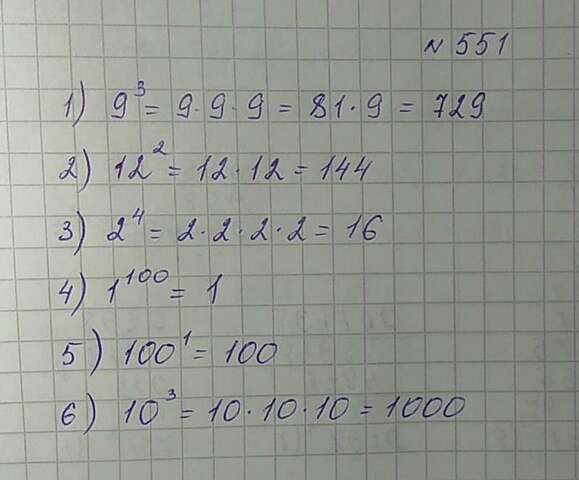 № 551
1) 9³ = 9·9·9 = 81·9 = 729
2) 12² = 12·12 = 144
3) 2⁴ = 2·2·2·2 = 16
4) 1¹⁰⁰ = 1
5) 100¹ = 100
6) 10³ = 10·10·10 = 1000